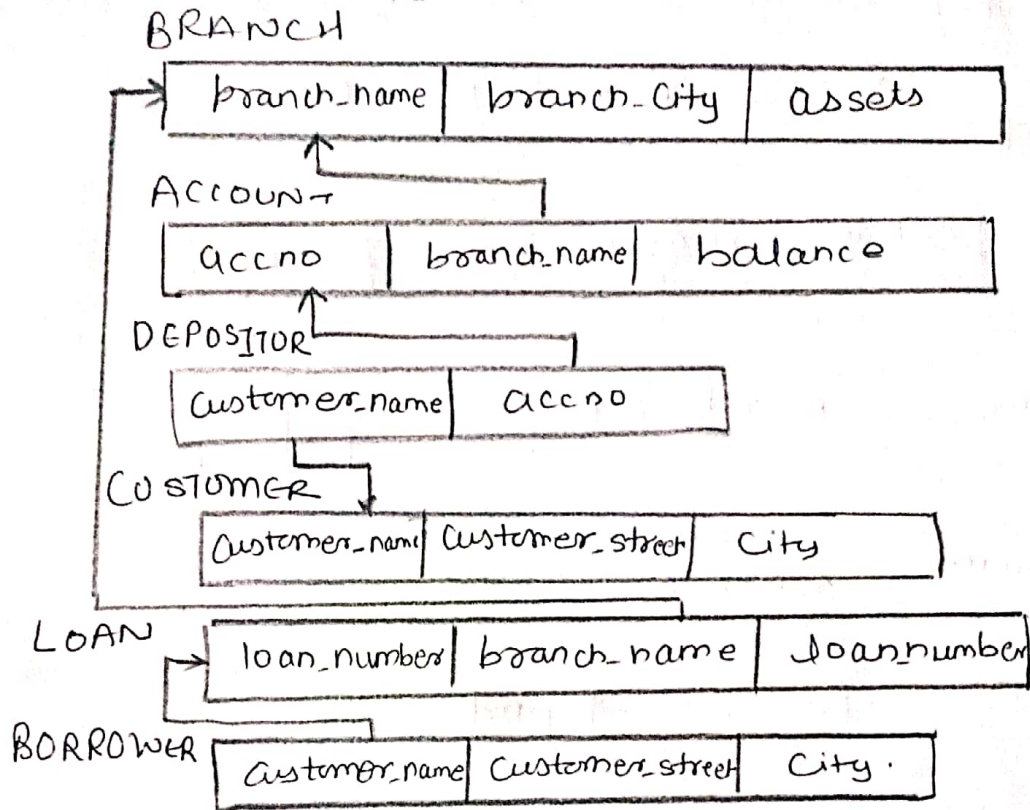 BRANCH
branch_name branch_City assets
ACCOUNT
accno branch_name balance
DEPOSITOR
Customer_name accno
CUSTOMER
Customer_name Customer_street City
LOAN loan_number branch_name loan_number
BORROWER Customer_name Customer_street City.